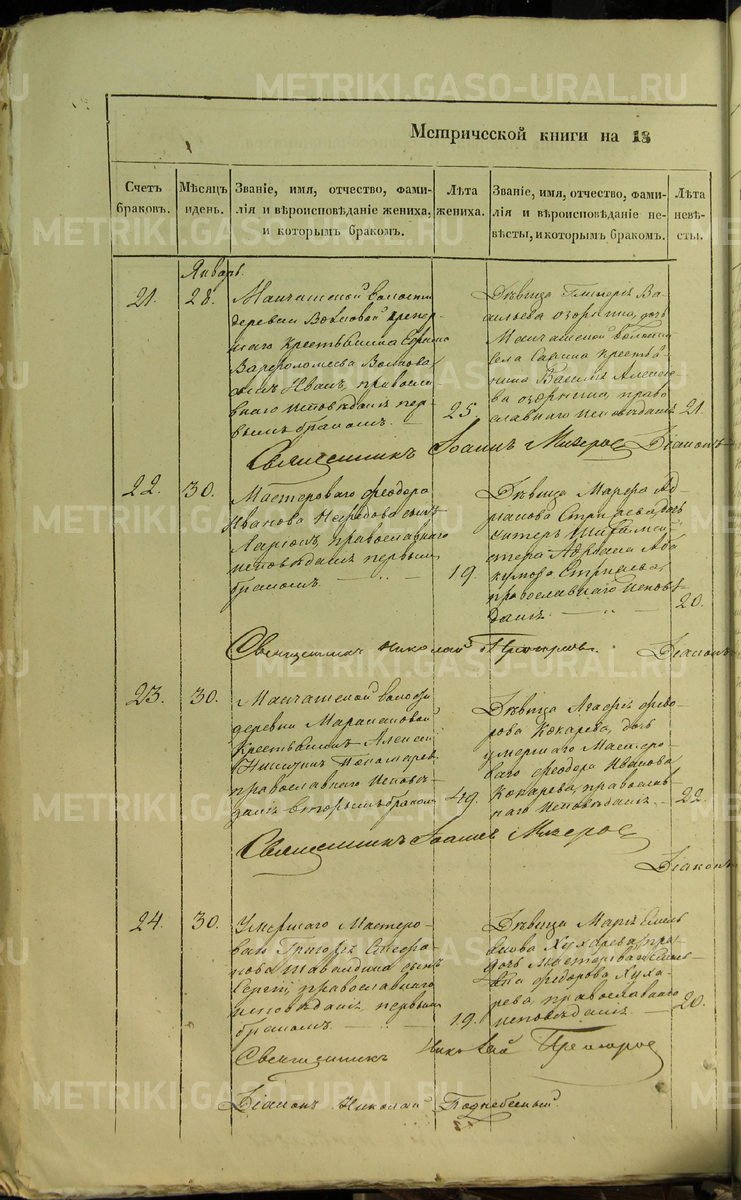 METRIKI.GASO-URAL.RU
Метрической книги на 18
Счетъ браковъ.
Мѣсяцъ и день.
Званіе, имя, отчество, фами-
лія и вѣроисповѣданіе жениха,
и которымъ бракомъ.
Лѣта жениха.
Званіе, имя, отчество, фами-
лія и вѣроисповѣданіе не-
вѣсты, и которымъ бракомъ.
Лѣта невѣ-
сты.
Январь.
21. 28.
Манчажской волости
деревни
Крестьянина
Варфоломеева Волкова
сынъ Иванъ, правосла-
внаго исповѣданія пер-
вымъ бракомъ.
25.
Дѣвица Гликерія Ва-
сильева дочь
Манчажской волости
села Савина кресть-
янина Василія Алексѣе-
ва право-
славнаго исповѣданія
21.
Священникъ Іоаннъ Мизеровъ Діаконъ
22. 30.
Мастероваго Феодора
Иванова сынъ
Ларіонъ, православнаго
исповѣданія первымъ
бракомъ.
19.
Дѣвица Марфа Ад-
ріанова дочь
Адріана Аба-
кумова
православнаго исповѣ-
данія.
20.
Священникъ Николай Діаконъ
23. 30.
Манчажской волости
деревни
Крестьянинъ Алексѣй
Никитинъ Пономаревъ
православнаго исповѣ-
данія вторымъ бракомъ
49.
Дѣвица Агафія Фео-
рова Кокарева, дочь
умершаго мастеро-
ваго Феодора Иванова
Кокарева, православ-
наго исповѣданія.
22.
Священникъ Іоаннъ Мизеровъ
Діаконъ
24. 30.
Умершаго мастеро-
ваго Григорія Стефа-
нова сынъ
Сергій, православнаго
исповѣданія, первымъ
бракомъ.
19.
Дѣвица Марія Емель
янова Хухарева,
дочь мастероваго Емель-
яна Федорова Хуха-
рева, православнаго
исповѣданія.
20.
Священникъ Николай
Діаконъ Николай Поднебесный